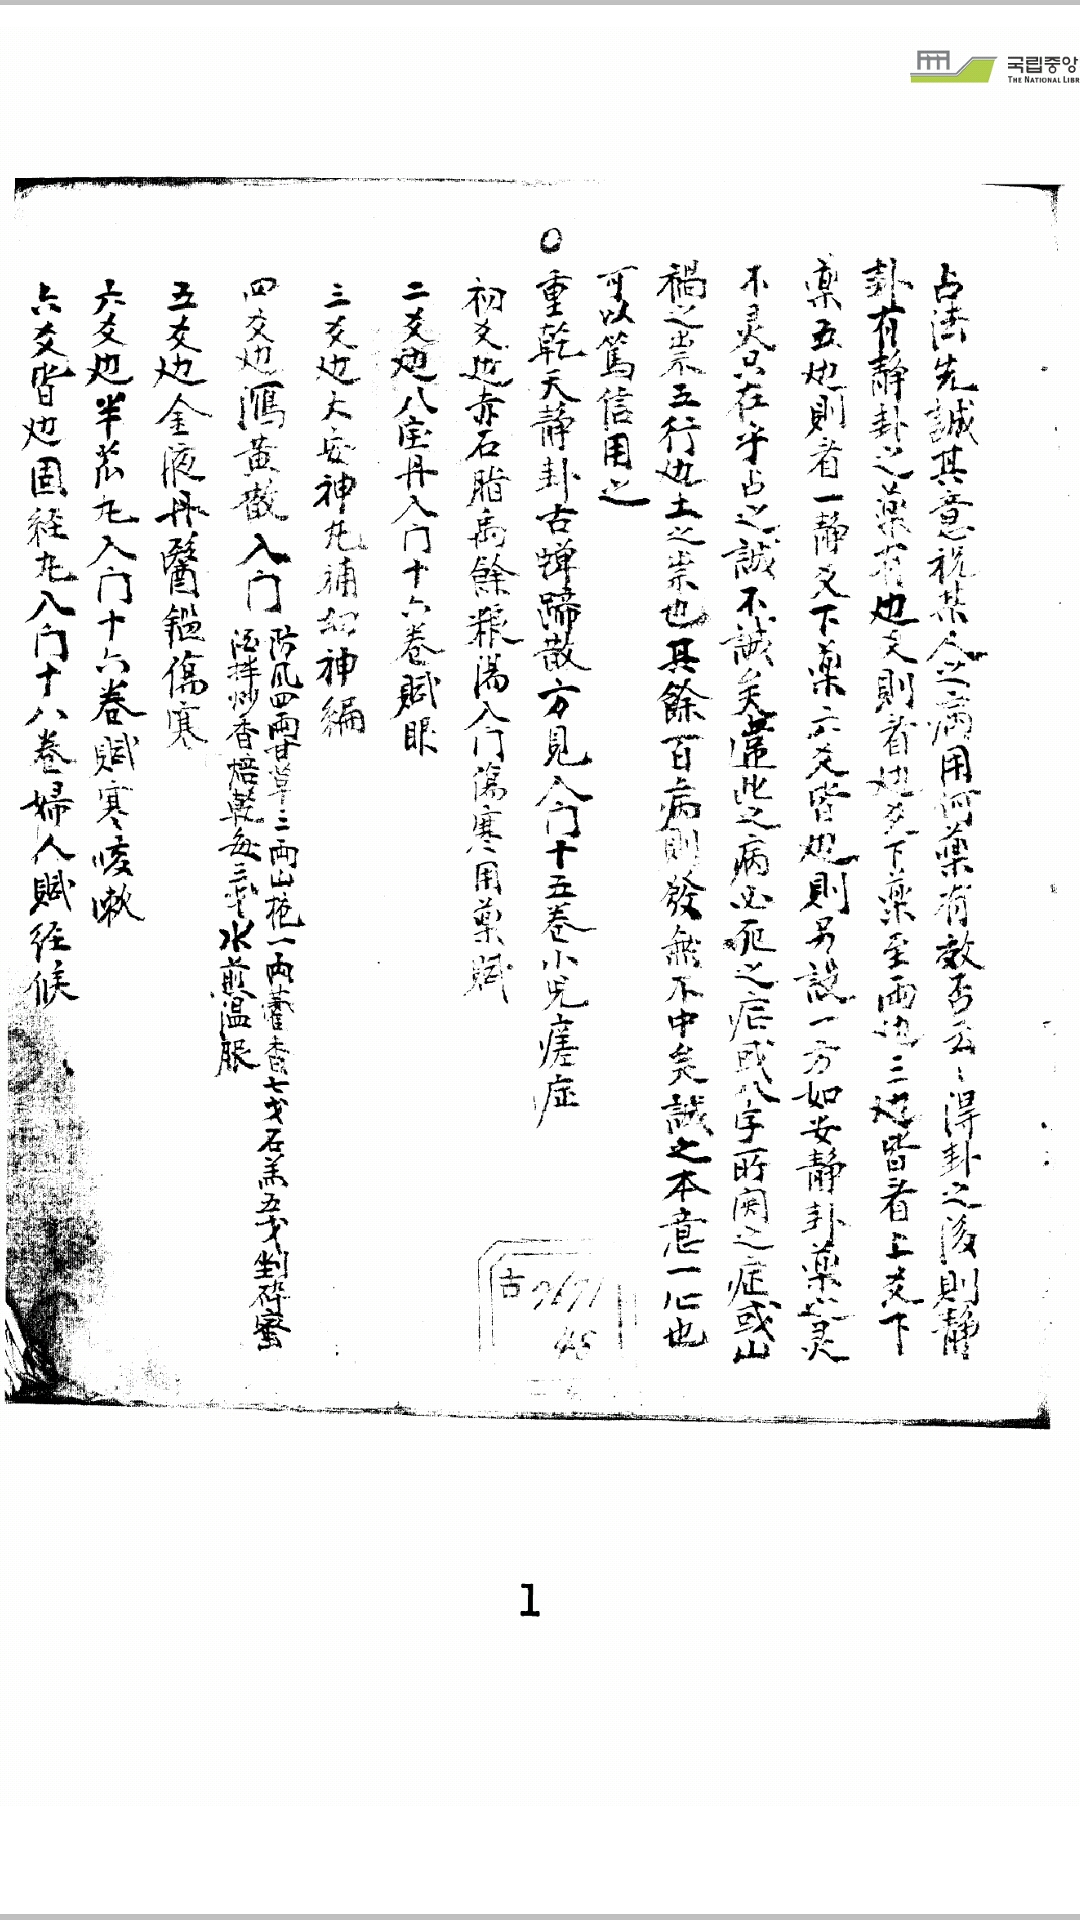 국립중앙
THE NATIONAL LIBR
占法先誠其意祝某人之病用何藥有效否云〻得卦之後則静
卦有静卦之藥有動爻則看動爻下藥至兩動三動皆看上爻下
藥五動則看一静爻下藥六爻皆動則另設一方如安静卦藥之灵
不灵只在乎占之誠不誠矣此之病必死之症或八字所関之症或山
禍之祟五行土之祟也其餘百病則發無不中矣誠之本意一心也
可以篤信用之
○重乾天静卦古蟬蹄散方見入门十五卷小児痘症
初爻动赤石脂禹餘粮湯入门傷寒用藥賦
二爻动八宝丹入门十六卷賦眼
三爻动大安神丸補幼神編
四爻动瀉黄散入门
防風四両甘草二両山梔一両藿香七戔石羔五戔剉碎蜜
酒拌炒香焙乾每三戔水煎温服
五爻动金液丹醫鑑傷寒
六爻动半苽丸入门十六卷賦寒痰嗽
六爻皆动固経丸入门十八卷婦人賦經候
古
2671
45
1